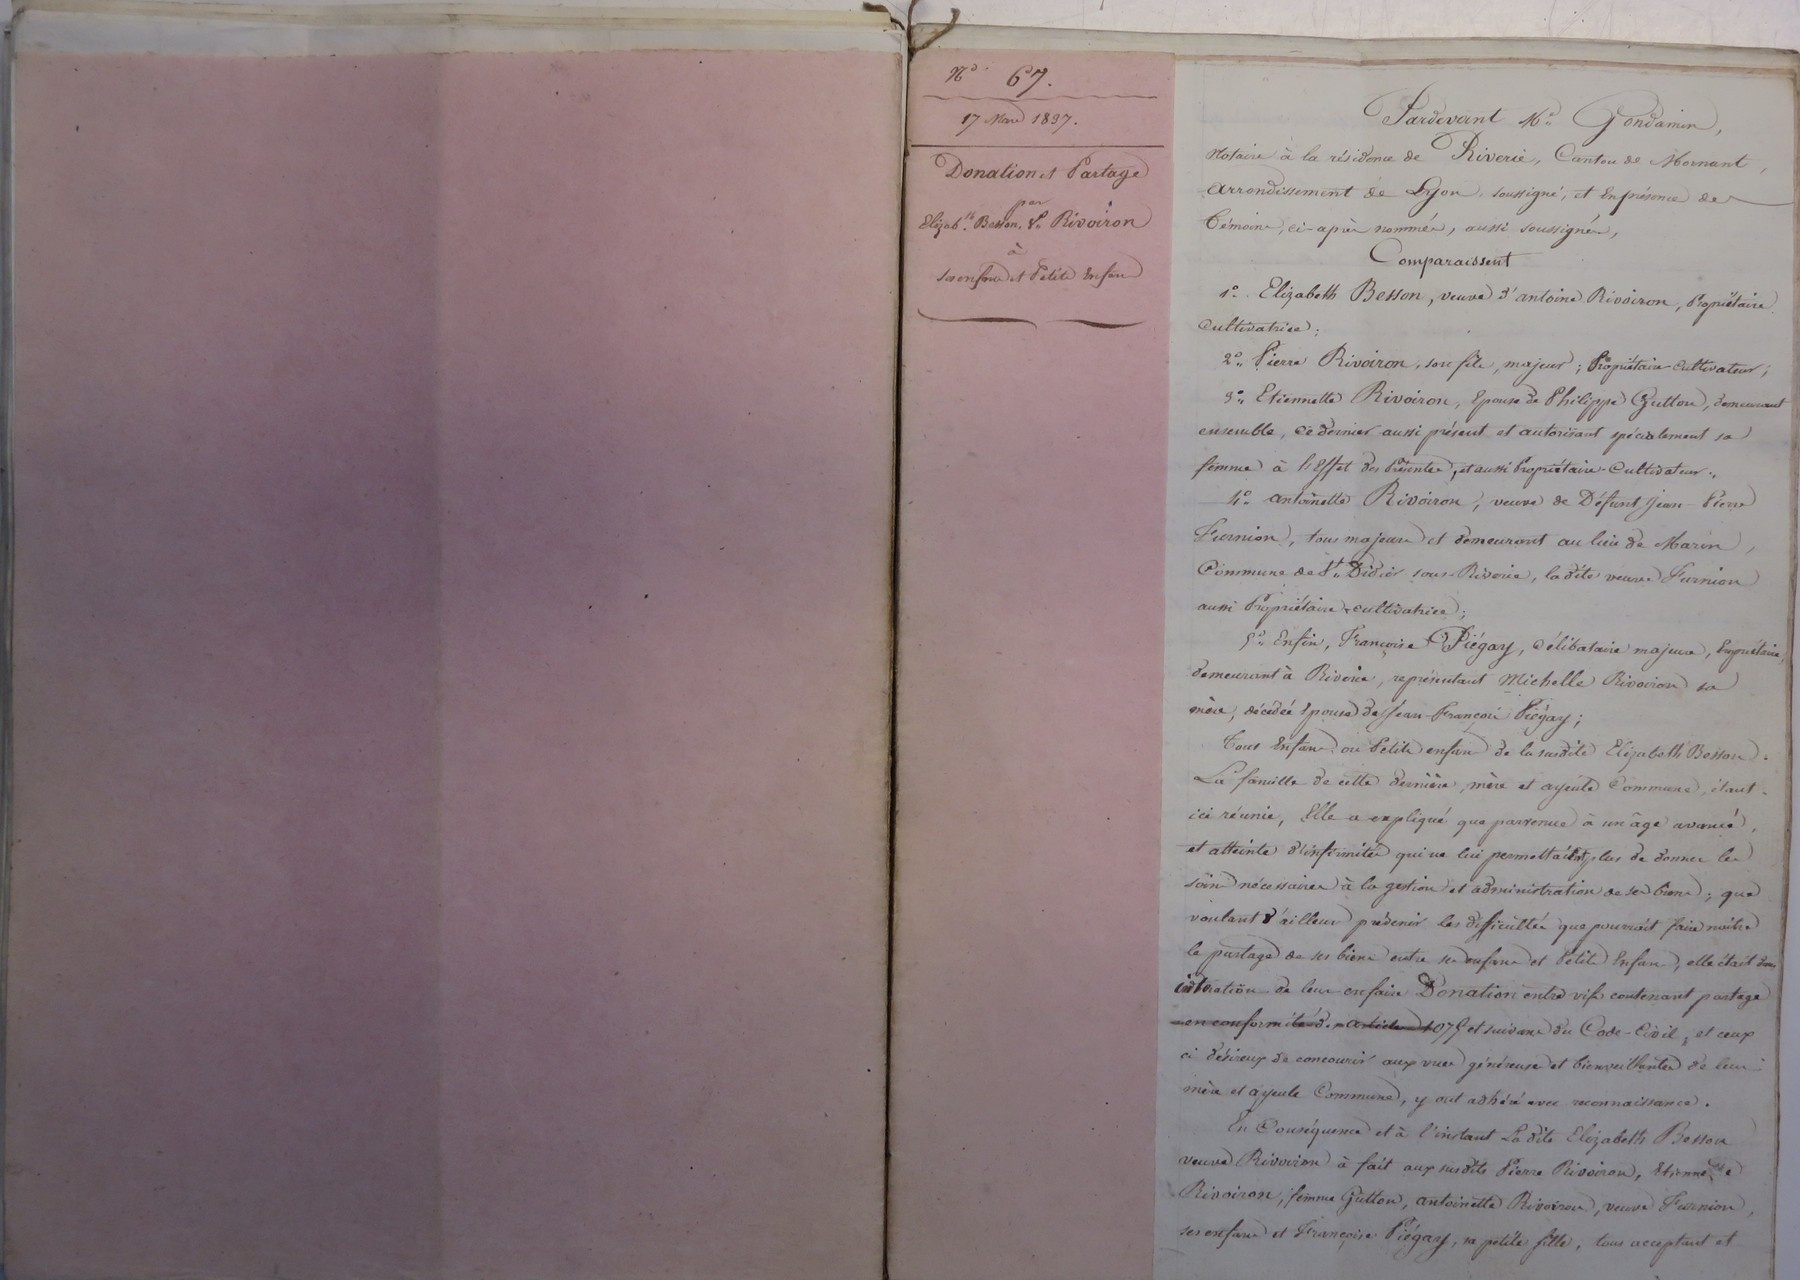 N° 67.
17 Mars 1837.
Donation et Partage
par
Elizab.th Besson, Ve Rivoiron
à
ses enfans et Petits Enfans
Pardevant Me Gondamin,
Notaire à la résidence de Riverie, Canton de Mornant,
arrondissement de Lyon, soussigné, et en présence des
témoins, ci-après nommés, aussi soussignés,
Comparaissent
1° Elizabeth Besson, veuve d'antoine Rivoiron, Propriétaire
Cultivatrice;
2° Pierre Rivoiron, son fils, majeur; Propriétaire-Cultivateur;
3° Etiennette Rivoiron, Epouse de Philippe Gutton, demeurant
ensemble, ce dernier aussi présent et autorisant spécialement sa
femme à l'Effet des Présentes, et aussi Propriétaire-Cultivateur;
4° antoinette Rivoiron, veuve de Défunt Jean-Pierre
Furnion, tous majeurs et demeurant au lieu de Marin,
Commune de St Didier sous-Riverie, la dite veuve Furnion
aussi Propriétaire-cultivatrice;
5° Enfin, Françoise Piégay, Célibataire majeure, Propriétaire,
demeurant à Riverie, représentant Michelle Rivoiron sa
mère, décédée Epouse de Jean-François Piégay;
Tous Enfans ou Petits enfans de la susdite Elizabeth Besson.
La famille de cette dernière, mère et ayeule Commune, étant
ici réunie, Elle a expliqué que parvenue à un âge avancé,
et atteinte d'infirmités qui ne lui permettaient plus de donner les
soins nécessaires à la gestion et administration de ses biens; que
voulant d'ailleurs prévenir les difficultés que pourrait faire naître
le partage de ses biens entre ses enfans et Petits Enfans, elle était dans
intention de leur en faire Donation entre vifs contenant partage
en conformité des articles 1075 et suivans du Code-Civil; et ceux
ci désireux de concourir aux vues généreuses et bienveillantes de leur
mère et ayeule Commune, y ont adhéré avec reconnaissance.
En Conséquence et à l'instant La dite Elizabeth Besson
veuve Rivoiron à fait aux susdits Pierre Rivoiron, Etiennette
Rivoiron, femme Gutton, antoinette Rivoiron, veuve Furnion,
ses enfans et Françoise Piégay, sa petite fille, tous acceptant et